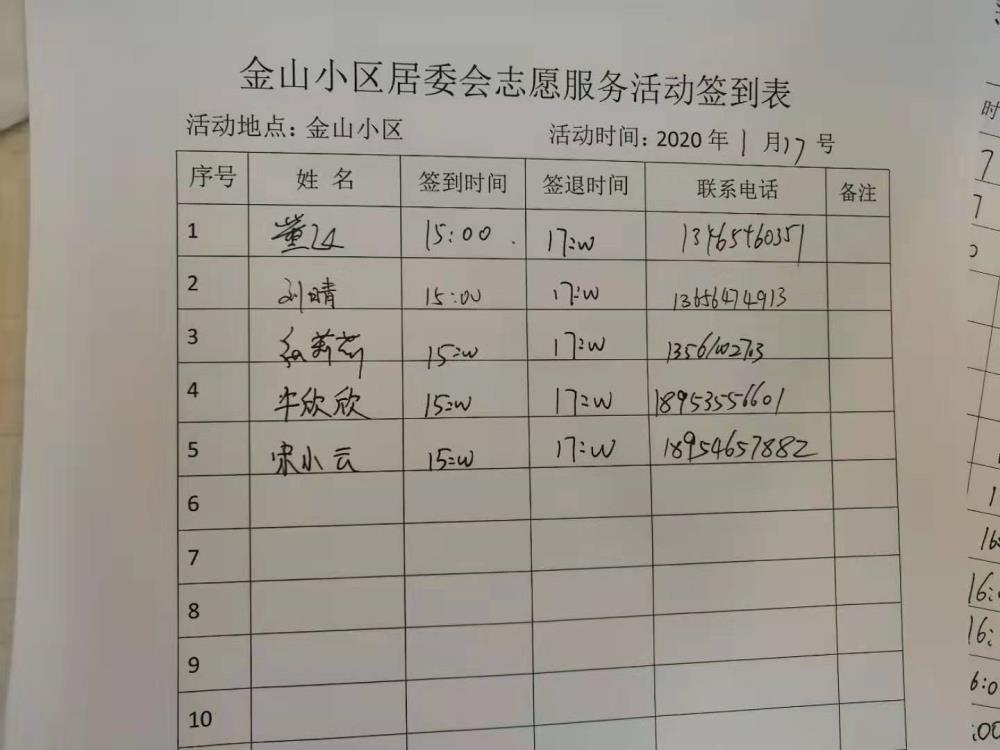 金山小区居委会志愿服务活动签到表
活动地点：金山小区 活动时间：2020年1月17号
序号 姓名 签到时间 签退时间 联系电话 备注
1 董 15:00 17:00 13465460351
2 刘晴 15:00 17:00 13656474913
3 15:00 17:00
4 牛欣欣 15:00 17:00 18953556601
5 宋小云 15:00 17:00 18954657882
6
7
8
9
10